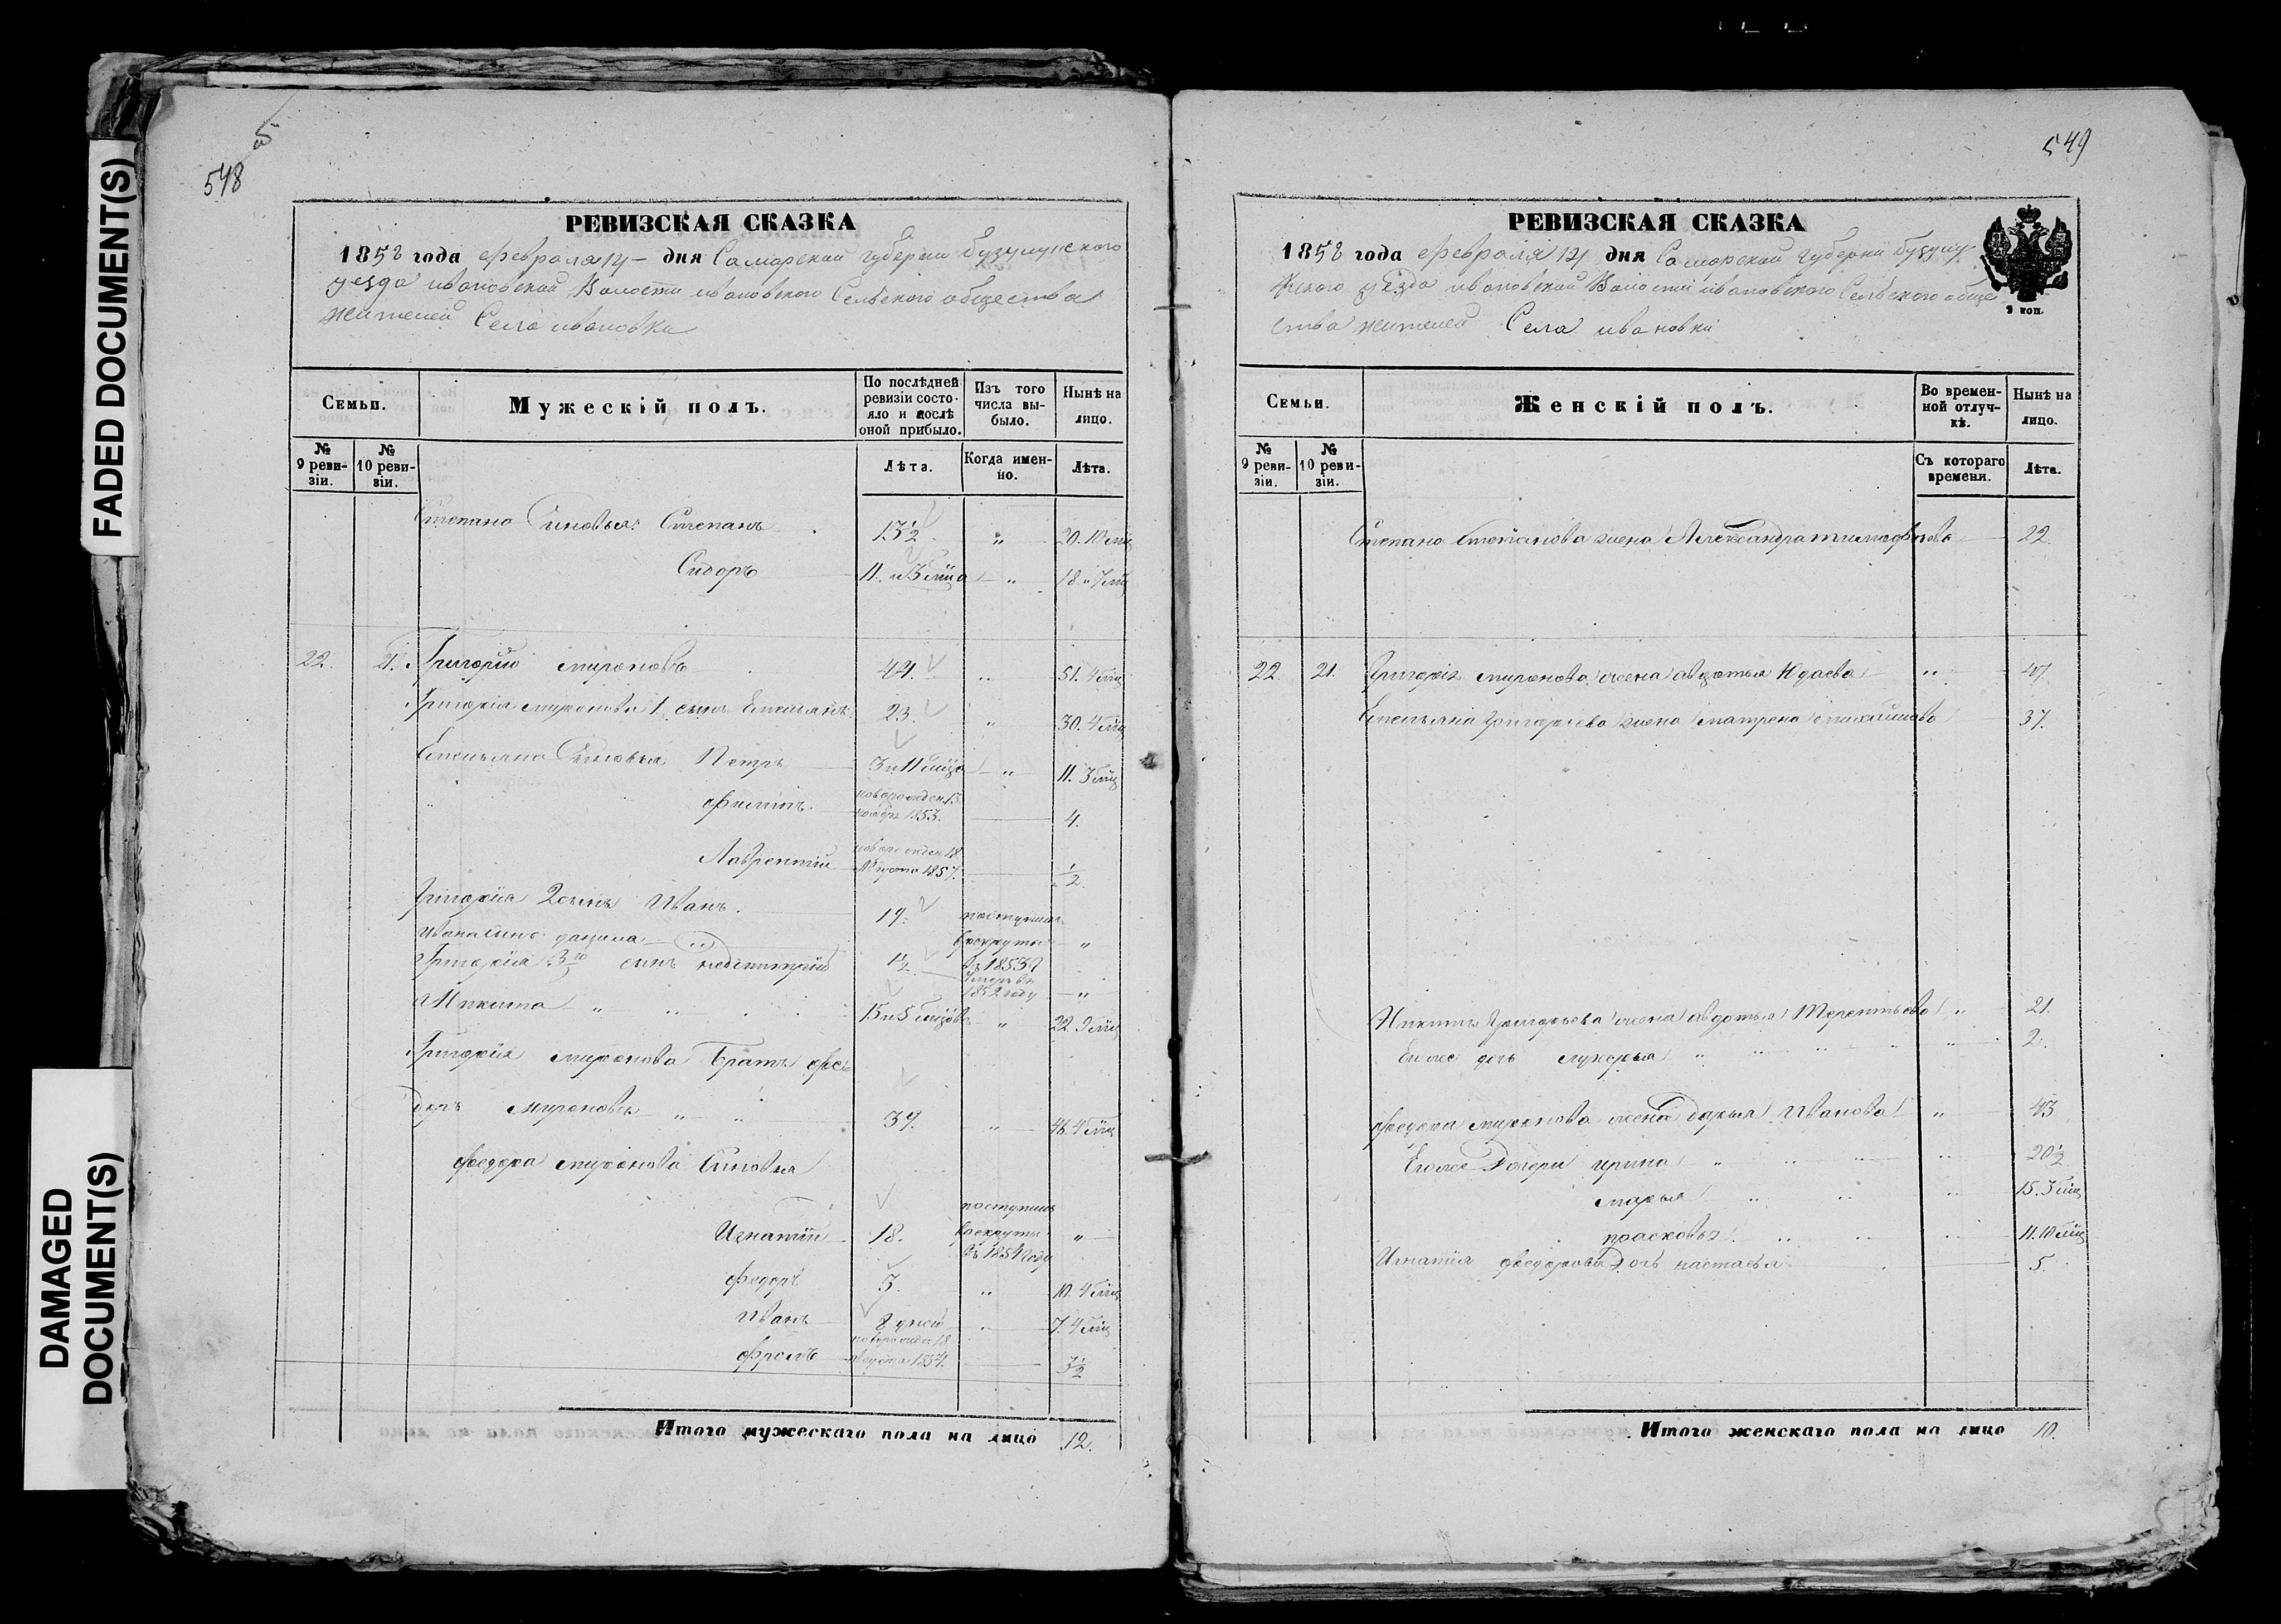 FADED DOCUMENT(S)
DAMAGED
DOCUMENT(S)
5
548
РЕВИЗСКАЯ СКАЗКА
1858 года февраля 14 дня Самарской губернии бузулукского
уезда ивановской Волости ивановского Сельского общества
жителей Села ивановки
Семьи.
Мужескій полъ.
По послѣдней ревизіи состояло и послѣ оной прибыло.
Изъ того числа выбыло.
Нынѣ на лицо.
№ 9 ревизіи.
№ 10 ревизіи.
Лѣта.
Когда именно.
Лѣта.
Степана Сыновья: Степанъ 13½ „ 20. 10 мцъ
Сидоръ 11. и 3 мца „ 18. и 7 мцъ
22. 21. Григорій мироновъ 44. „ 51. 4 мцъ
Григорія миронова 1 сынъ Емельянъ 23. „ 30. 4 мцъ
Емельяна Сыновья Петръ 3 и 11 мцовъ „ 11. 3 мцъ
филипъ новорожден. 13 ноября 1853. 4.
Лаврентій новорожден. 18 Августа 1857. ½
Григорія 2 сынъ Иванъ. 19. поступилъ
Ивана сынъ данила „ врекруты „
Григорія 3й сынъ 1½ въ 1853 г
умеръ въ 1852 году „
Микита „ 15 и 5 мцовъ „ 22. 9 мцъ
Григорія миронова Братъ фео
доръ мироновъ „ „ 39. „ 46. 4 мцъ
феодора миронова Сыновья
Игнатій 18. поступилъ врекруты въ 1854 году „
федоръ 3. „ 10. 4 мцъ
Иванъ 8 дней „ 7. 4 мцъ
фролъ новорожден 18 августа 1854. 3½
Итого мужескаго пола на лицо 12.
549
РЕВИЗСКАЯ СКАЗКА
1858 года февраля 14 дня Самарской губерніи бузулу
кского уезда ивановской Волости ивановского Сельского обще
ства жителей Села ивановки
2 коп.
Семьи.
Женскій полъ.
Во временной отлучкѣ.
Нынѣ на лицо.
№ 9 ревизіи.
№ 10 ревизіи.
Съ котораго времени.
Лѣта.
Степана Степанова жена Александра тимофеева 22.
22. 21. Григорія миронова жена авдотья Юдаева „ 47
Емельяна Григорьева жена матрена михайлова 37.
Никиты Григорьева жена авдотья Терентьева „ 21.
Еголес дочь лукерья „ „ „ „ 2.
феодора миронова жена дарья Иванова „ 43
Еголес Дочери ирина „ „ „ 20½
марья „ „ „ 15. 3 мцъ
прасковья „ „ „ 11. 10 мцъ
Игнатія феодорова Дочь настасья 5.
Итого женскаго пола на лицо 10.